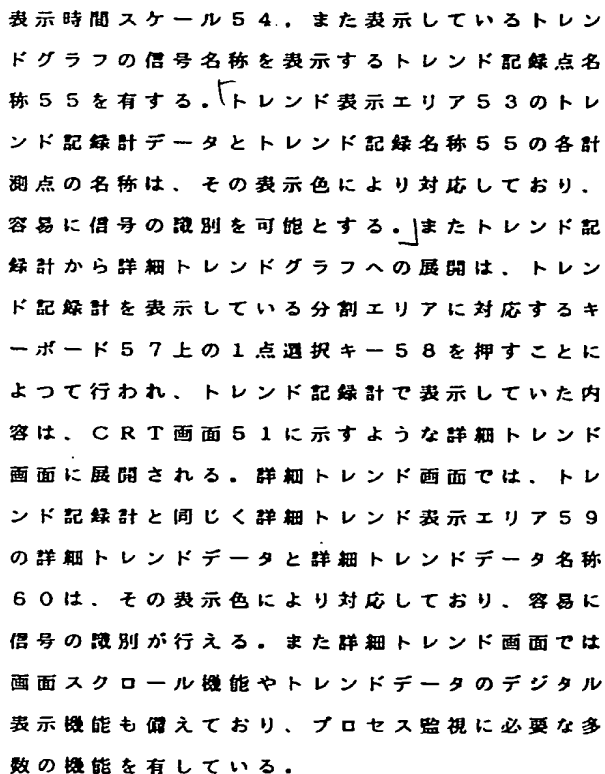 表示時間スケール54、また表示しているトレン
ドグラフの信号名称を表示するトレンド記録点名
称55を有する。「トレンド表示エリア53のトレ
ンド記録計データとトレンド記録名称55の各計
測点の名称は、その表示色により対応しており、
容易に信号の識別を可能とする。」またトレンド記
録計から詳細トレンドグラフへの展開は、トレン
ド記録計を表示している分割エリアに対応するキ
ーボード57上の1点選択キー58を押すことに
よつて行われ、トレンド記録計で表示していた内
容は、CRT画面51に示すような詳細トレンド
画面に展開される。詳細トレンド画面では、トレ
ンド記録計と同じく詳細トレンド表示エリア59
の詳細トレンドデータと詳細トレンドデータ名称
60は、その表示色により対応しており、容易に
信号の識別が行える。また詳細トレンド画面では
画面スクロール機能やトレンドデータのデジタル
表示機能も備えており、プロセス監視に必要な多
数の機能を有している。